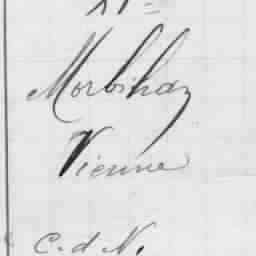 Morbihan
Vienne
C. d N.